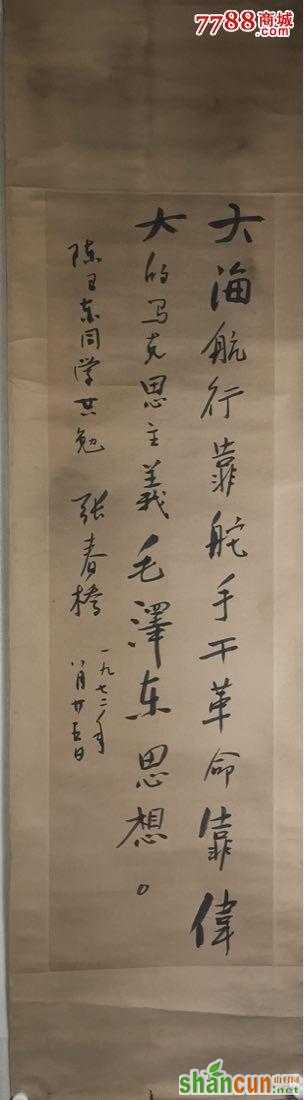 7788商城
大海航行靠舵手干革命靠偉
大的马克思主義毛澤东思想。
陈玉东同学共勉
张春桥
一九七二年
八月廿五日
shancun
.net